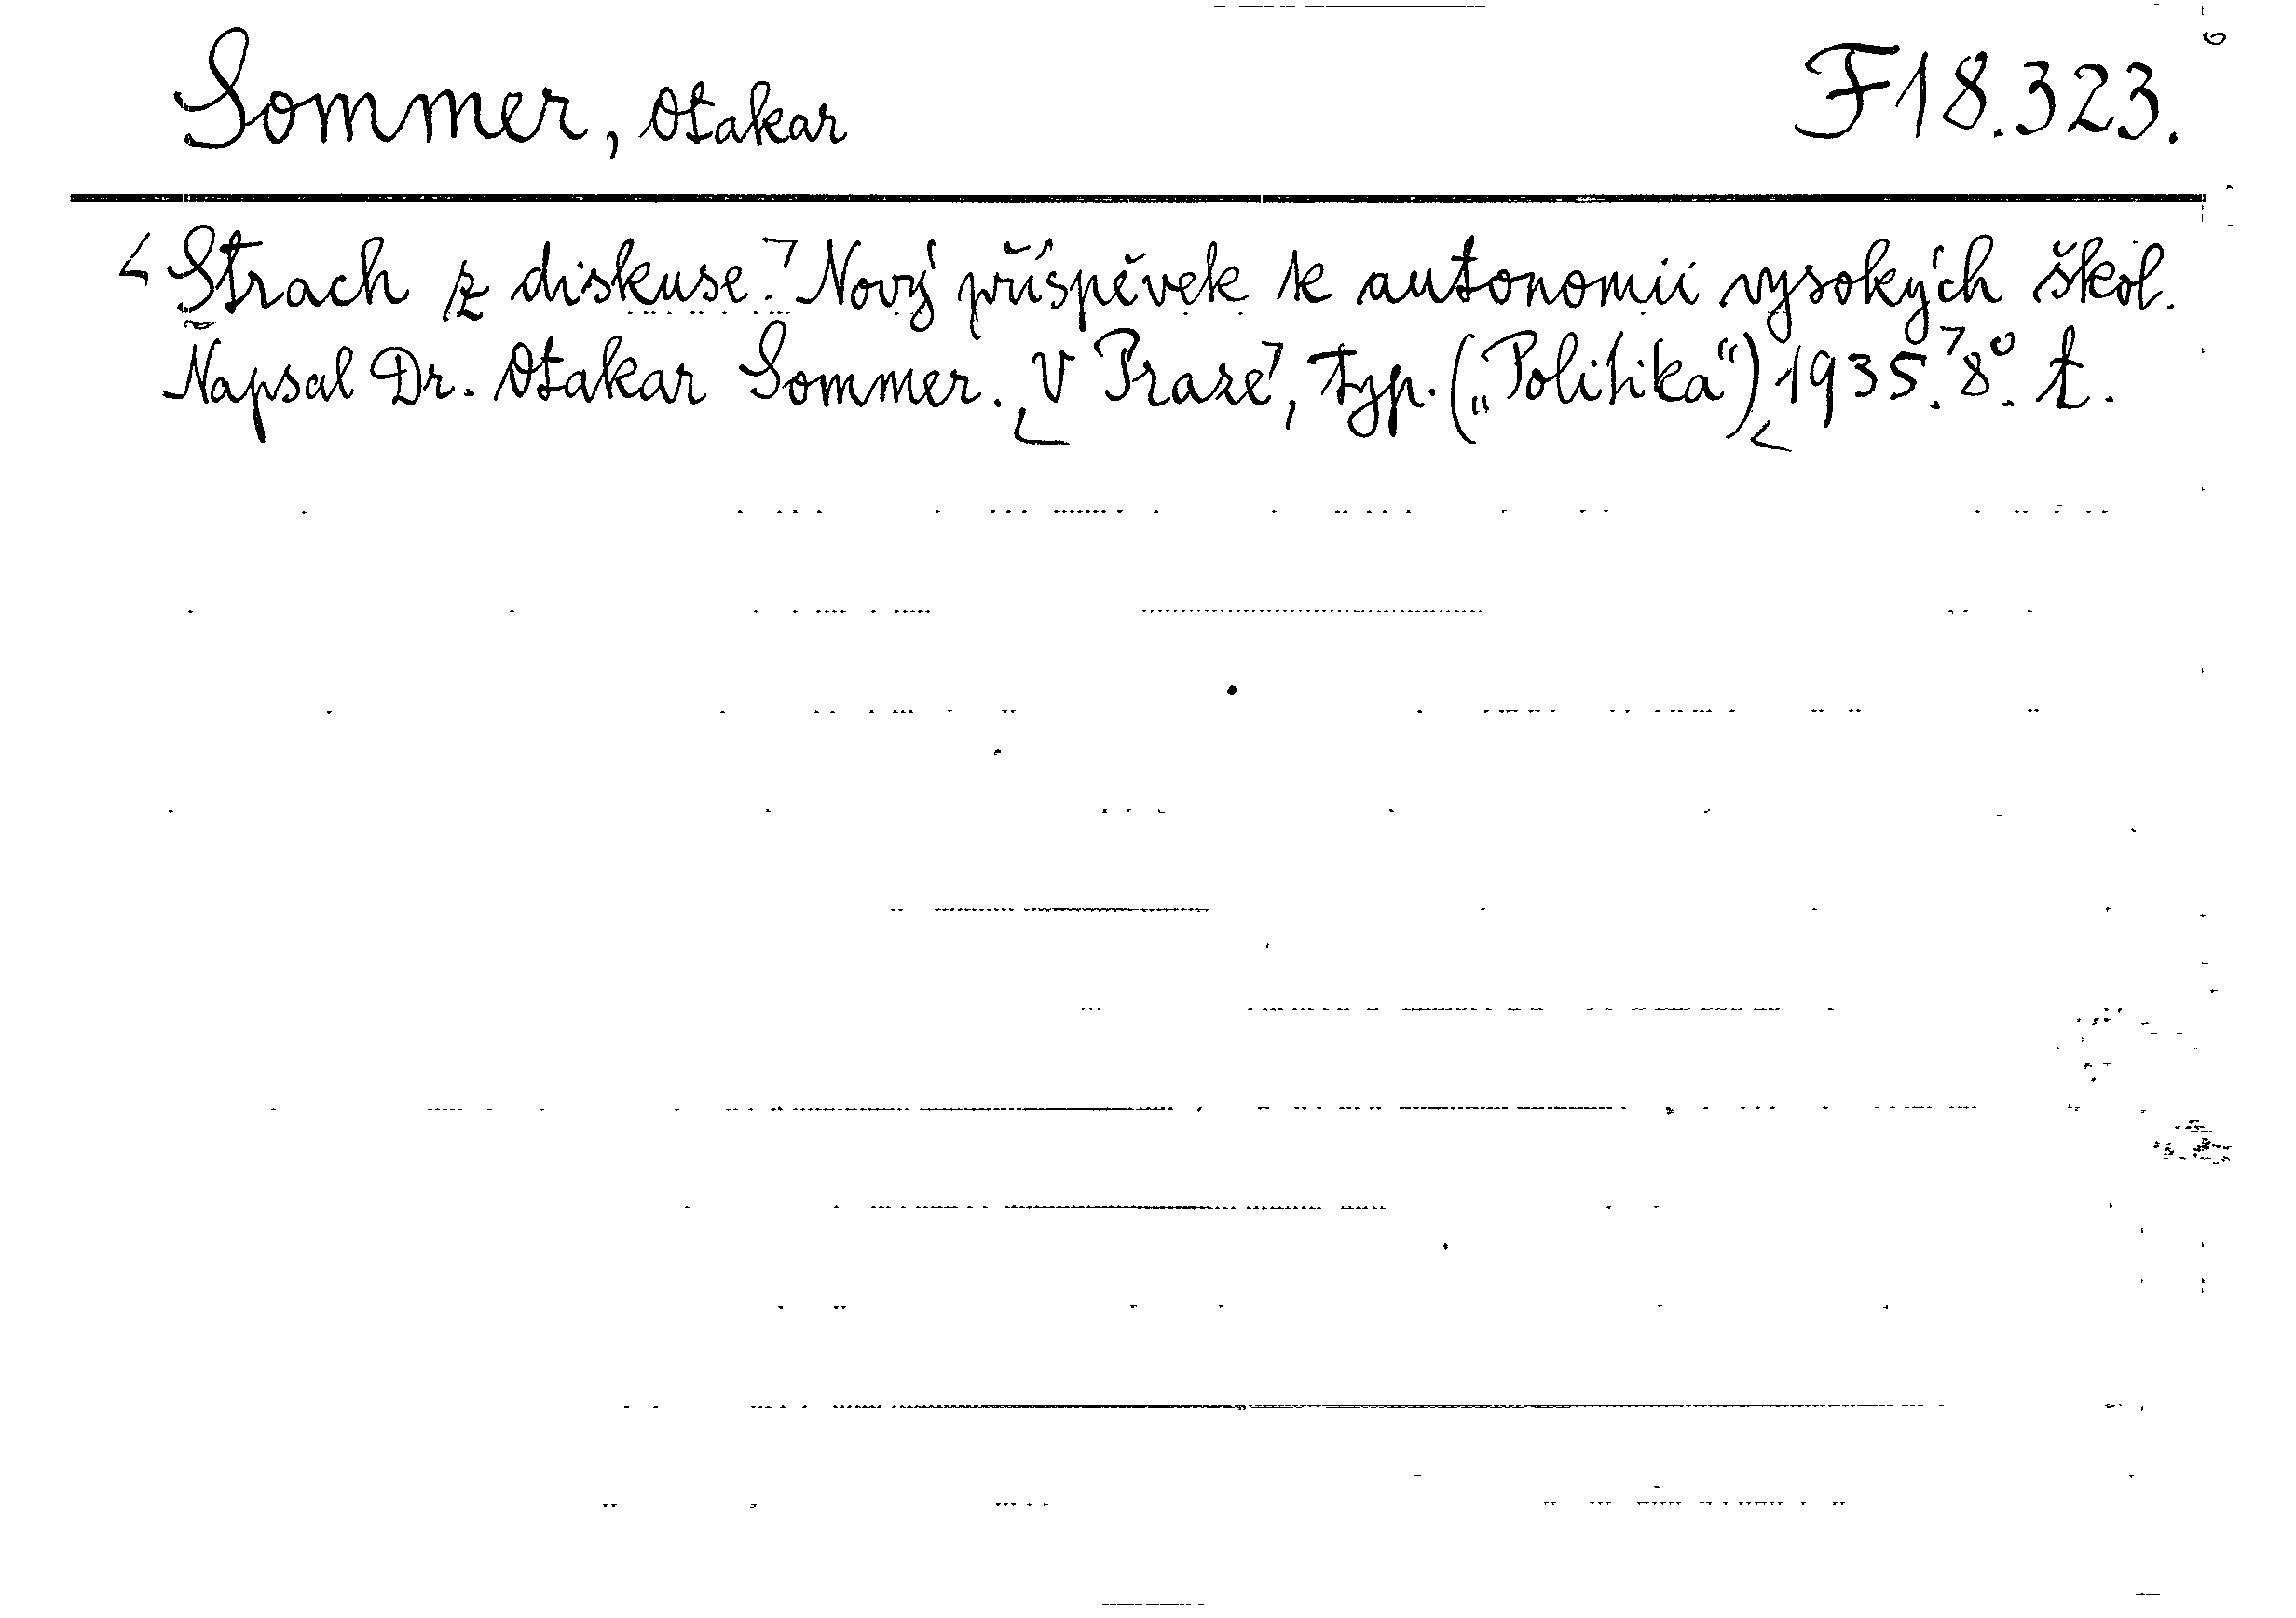 Sommer, Otakar F18.323.
Strach z diskuse? Nový příspěvek k autonomii vysokých škol.
Napsal Dr. Otakar Sommer. V Praze, typ. („Politika“) 1935. 8°. t.